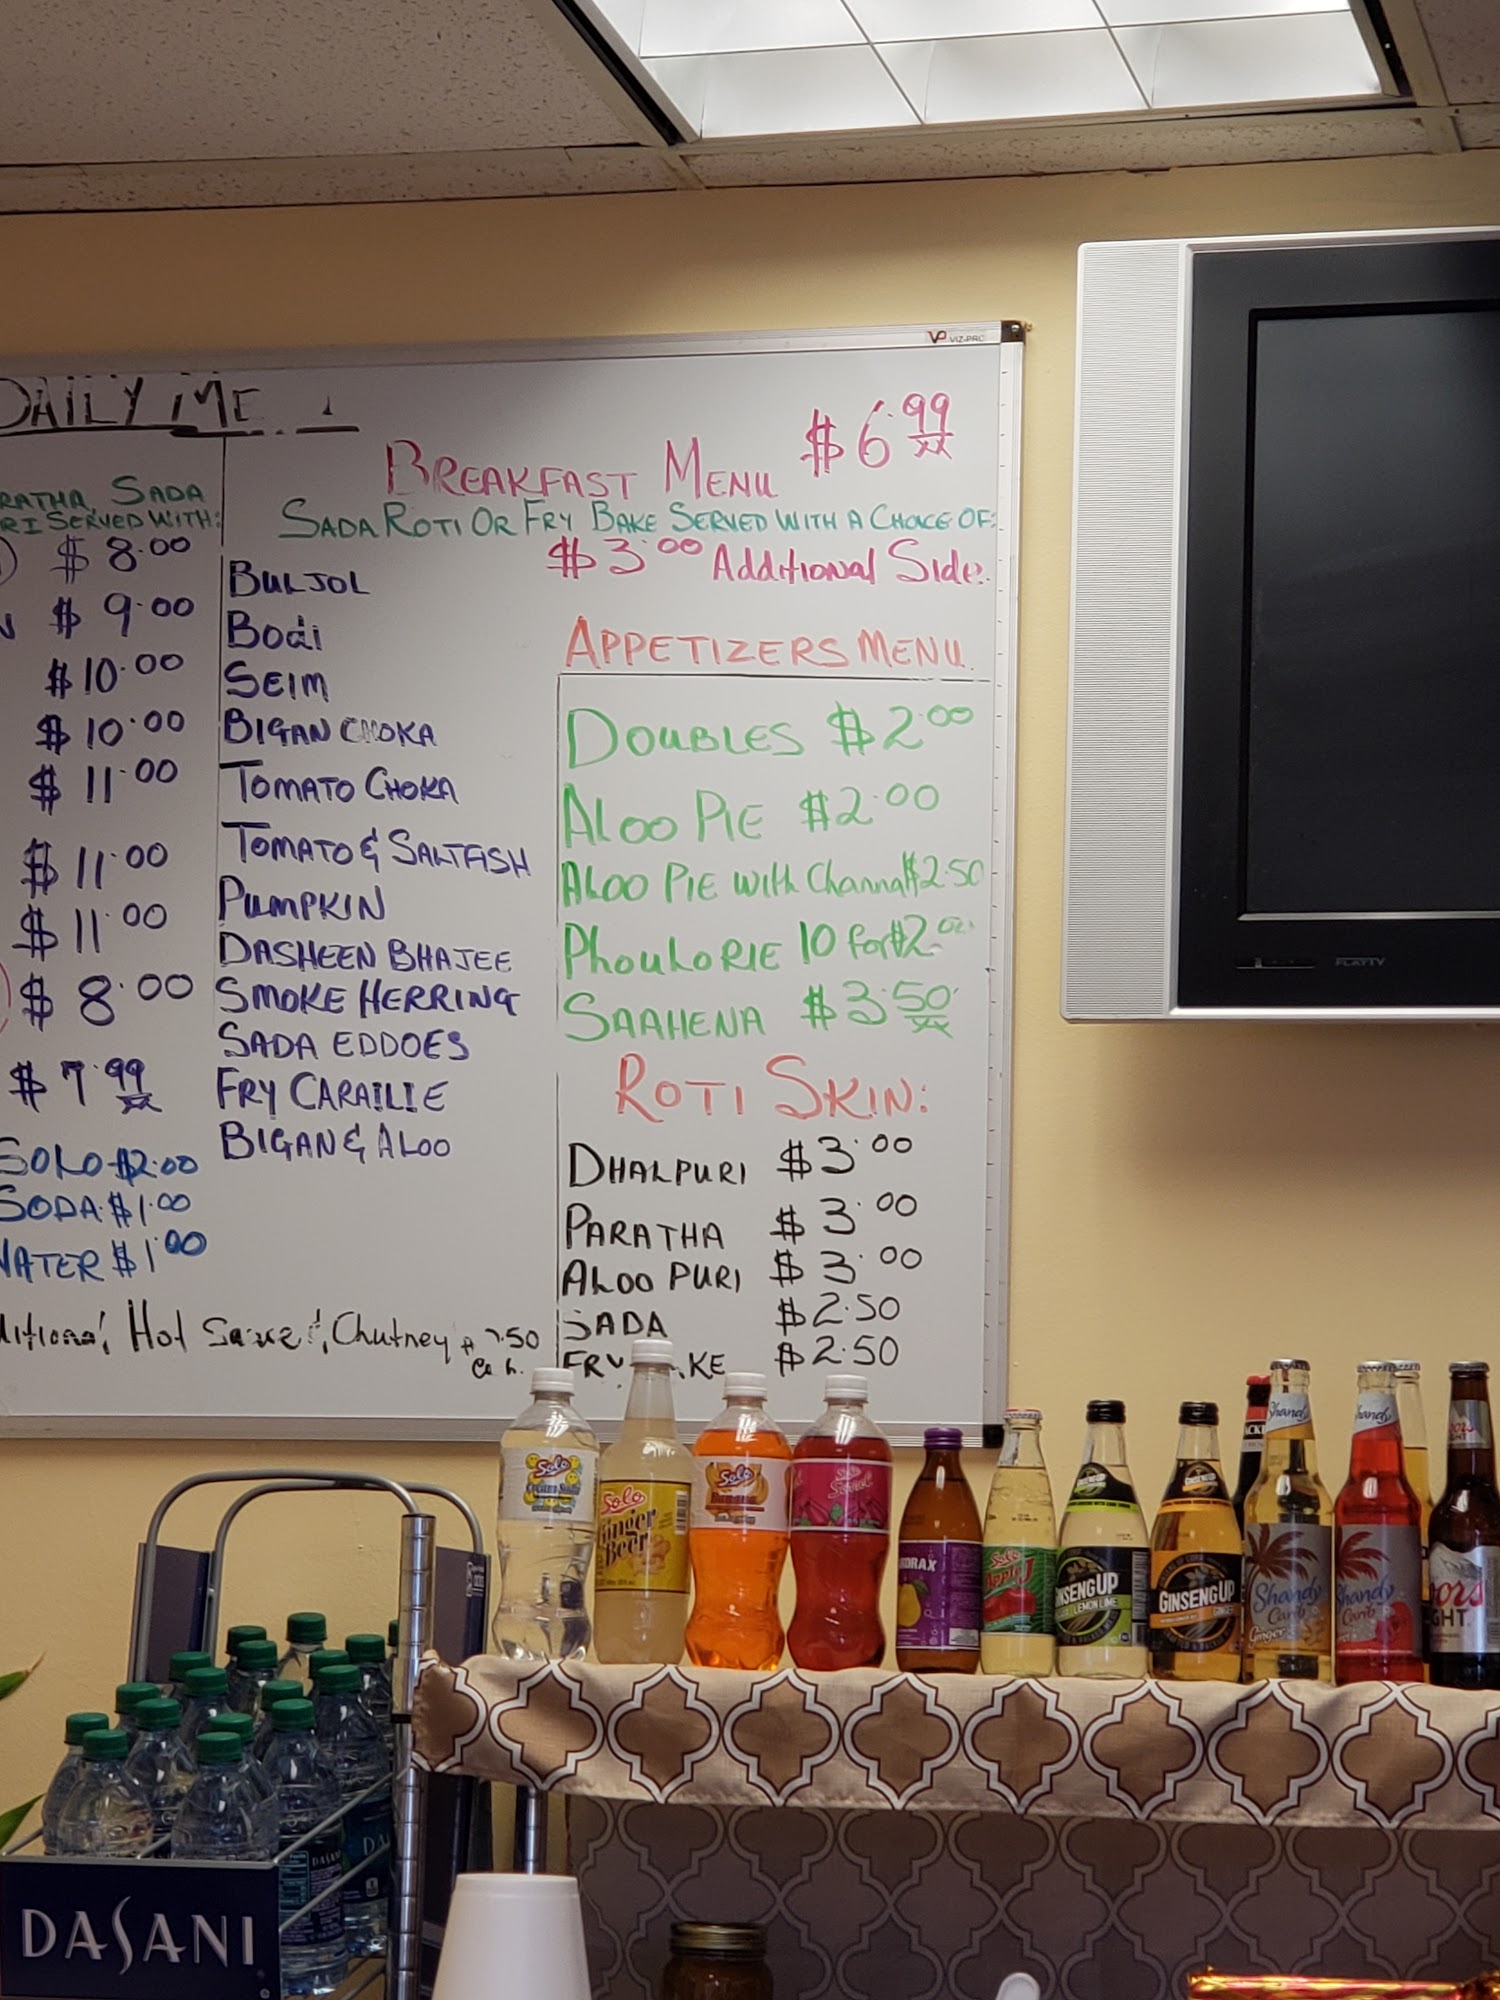 DAILY
VIZ-PRO
BREAKFAST MENU $6.99
SADA ROTI OR FRY BAKE SERVED WITH A CHOICE OF:
$3.00 Additional Side.
SADA
SERVED WITH:
$8.00
$9.00
$10.00
$10.00
$11.00
$11.00
$11.00
$8.00
$7.99
SOLO $2.00
SODA $1.00
WATER $1.00
BULJOL
Bodi
SEIM
BIGAN CHOKA
TOMATO CHOKA
TOMATO & SALTFISH
PUMPKIN
DASHEEN BHAJEE
SMOKE HERRING
SADA EDDOES
FRY CARAILIE
BIGAN & ALOO
Hot Sauce, Chutney
APPETIZERS MENU
DOUBLES $2.00
ALOO PIE $2.00
ALOO PIE with Channa $2.50
PhouLORIE 10 for $2.00
SAAHENA $3.50
ROTI SKIN:
DHALPURI $3.00
PARATHA $3.00
ALOO PURI $3.00
SADA $2.50
FRY $2.50
FLATTV
Solo
Solo
Ginger
Beer
Solo
Banana
Solo
Sorrel
Solo
Apple J
GINSENGUP
LEMON LIME
GINSENGUP
Shandy
Shandy
Carib
Ginger
Shandy
Shandy
Carib
DASANI